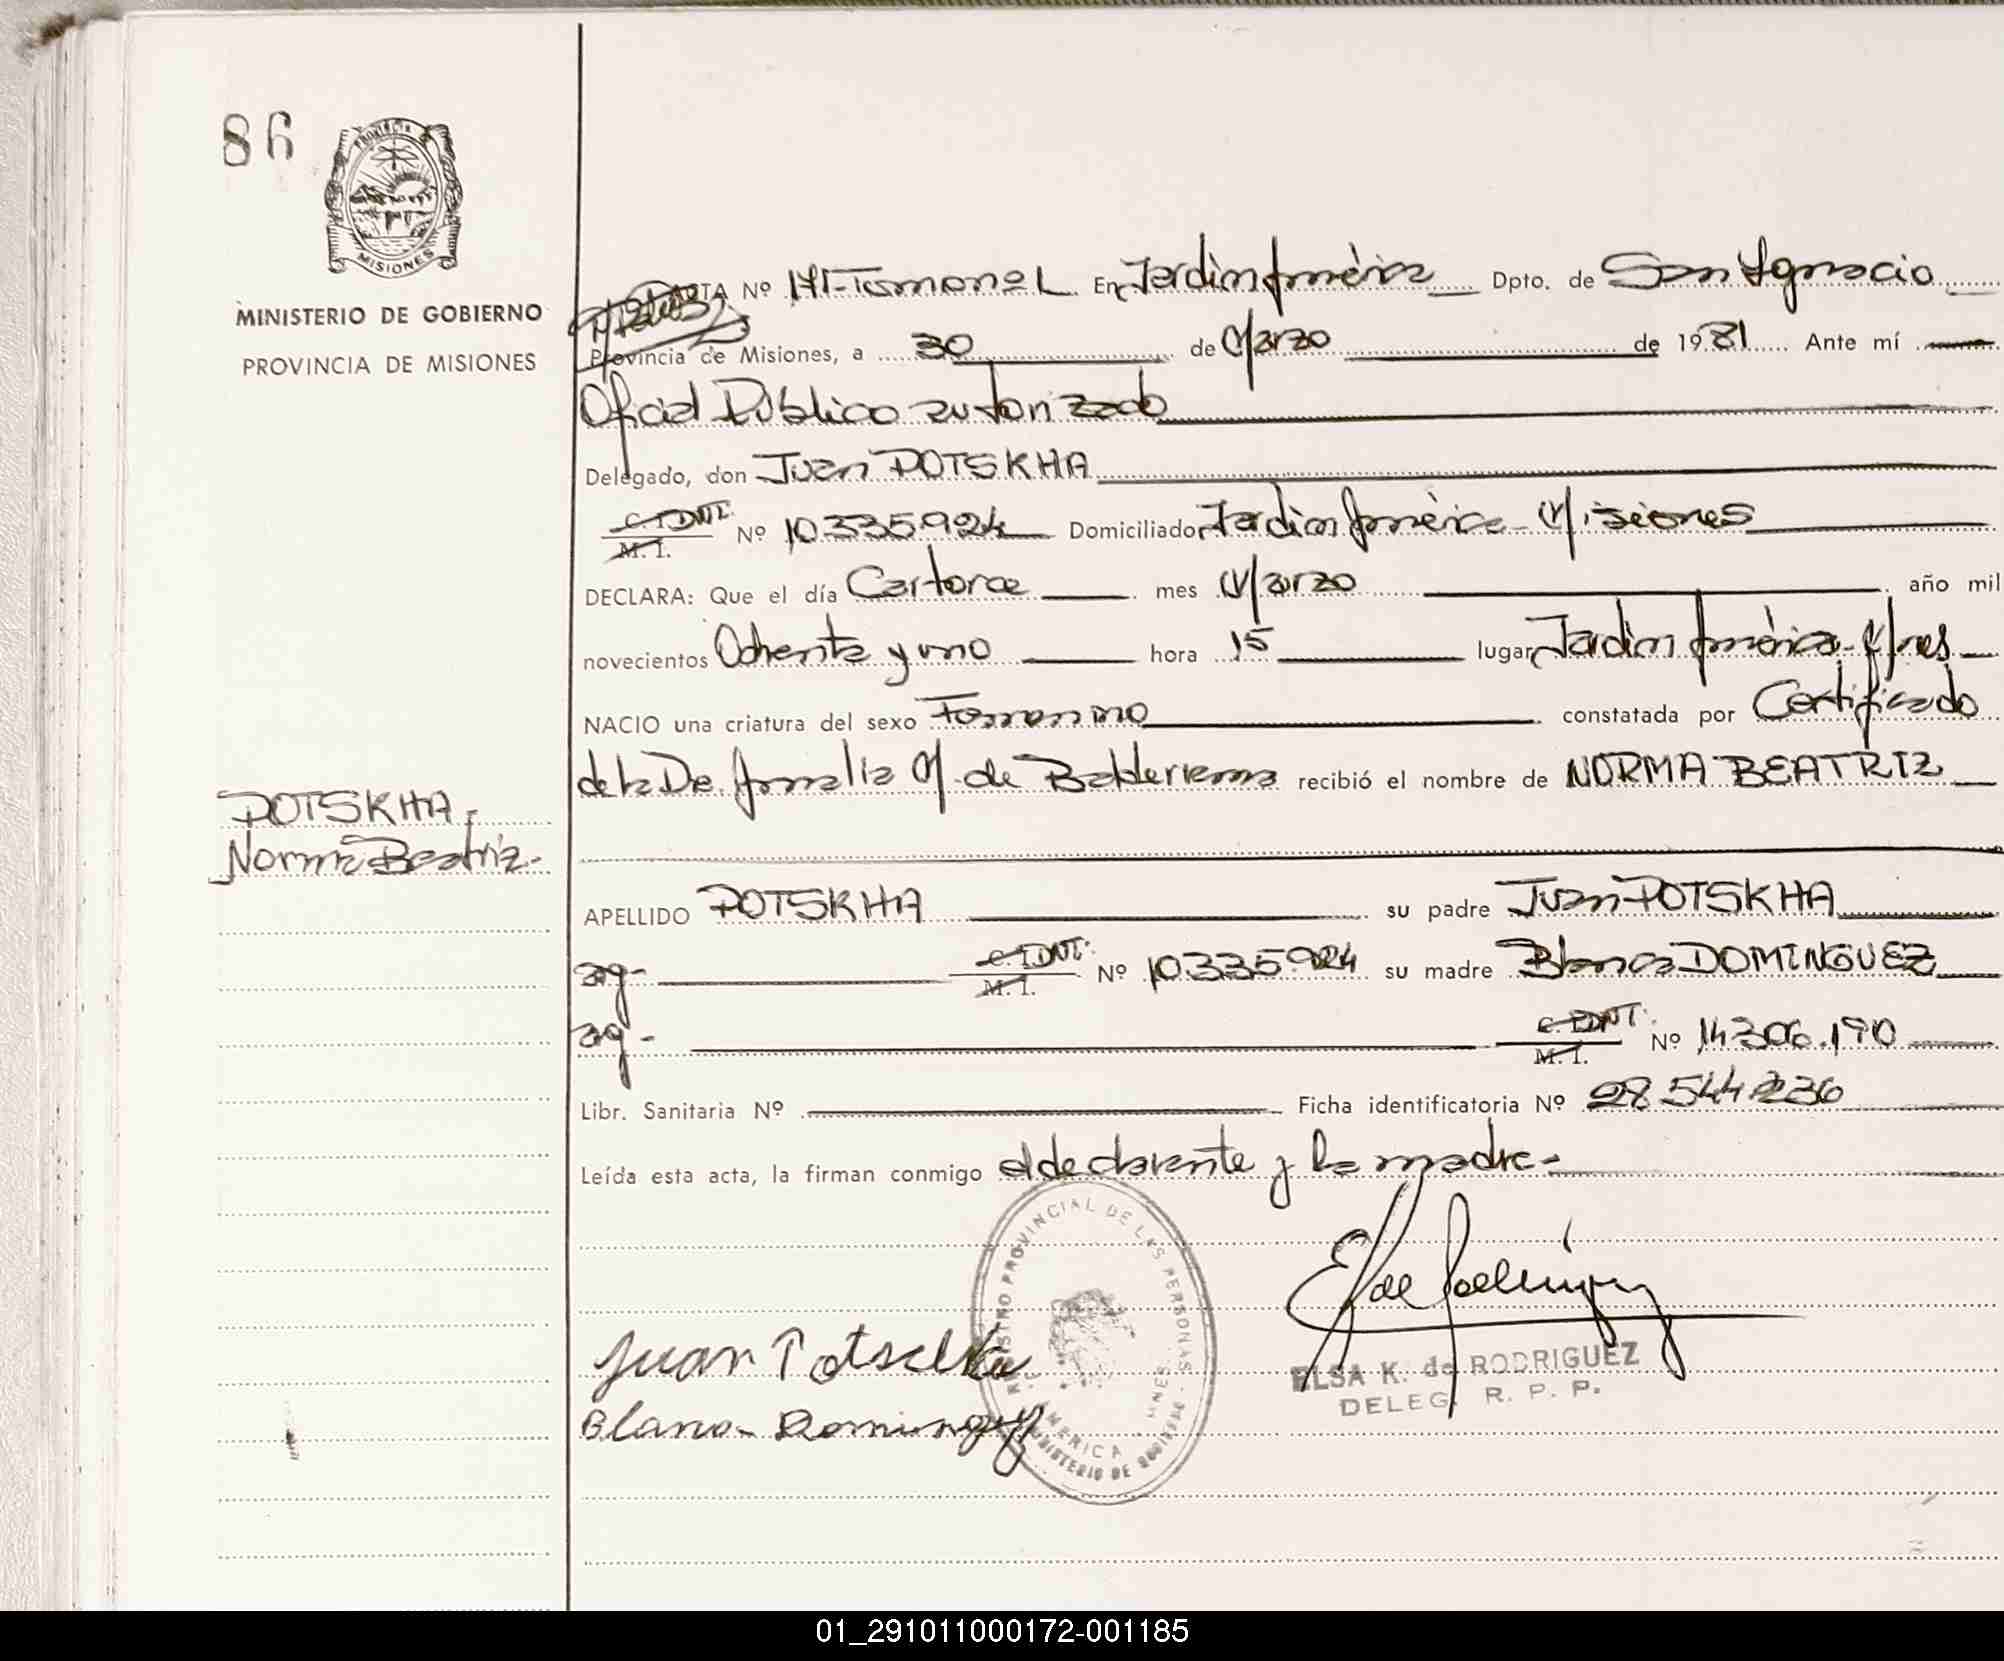 86
PROVINCIA DE
MISIONES
MINISTERIO DE GOBIERNO
PROVINCIA DE MISIONES
POTSKHA.
Norma Beatriz.
ACTA Nº 141-Tomo nº 1. En Jardín América Dpto. de San Ignacio
Provincia de Misiones, a 30 de Marzo de 1981 Ante mí
Oficial Público autorizado
Delegado, don Juan POTSKHA
C. I. DNI. M. I. Nº 10.335.924 Domiciliado Jardín América Misiones
DECLARA: Que el día Cartorce mes Marzo año mil
novecientos Ochenta y uno hora 15 lugar Jardín América-Mnes
NACIO una criatura del sexo Femenino constatada por Certificado
de la Dr. Amalia M. de Balderrama recibió el nombre de NORMA BEATRIZ
APELLIDO POTSKHA su padre Juan POTSKHA
arg- C. I. DNI. M. I. Nº 10.335.924 su madre Blanca DOMINGUEZ
arg- C. I. DNI. M. I. Nº 14.306.190
Libr. Sanitaria Nº Ficha identificatoria Nº 28.544.236
Leída esta acta, la firman conmigo el declarante y la madre-
REGISTRO PROVINCIAL DE LAS PERSONAS - MINISTERIO DE GOBIERNO
AMERICA
Juan Potschka
Blanca Dominguez
ELSA K. de RODRIGUEZ
DELEG. R. P. P.
01_291011000172-001185